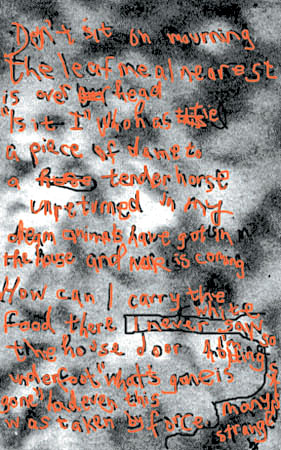 Don't sit on mourning
the leafmeal nearest
is over head
"Is it I" who has the
a piece of
a tender horse
unreturned in my
dream animals have got in
the house and more is coming
How can I carry the
food there I never saw white
the house door
underfoot "what's gone is
gone" had even this
was taken by force many
strange